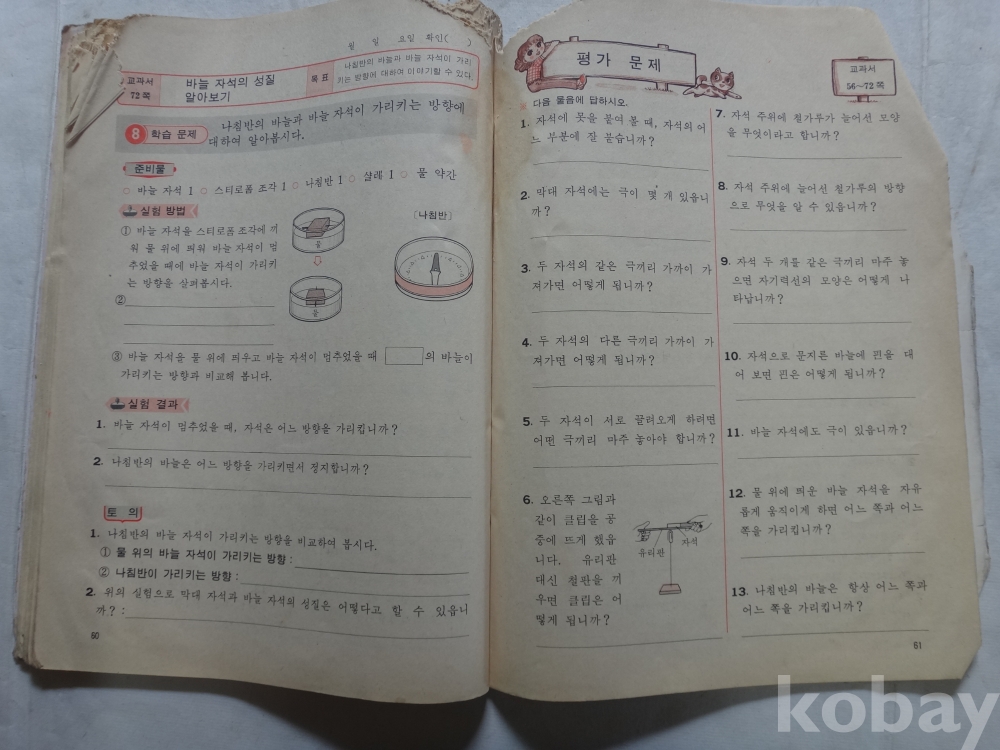 월 일 요일 확인( )
교과서
72쪽
바늘 자석의 성질
알아보기
목표
나침반의 바늘과 바늘 자석이 가리
키는 방향에 대하여 이야기할 수 있다.
8 학습 문제
나침반의 바늘과 바늘 자석이 가리키는 방향에
대하여 알아봅시다.
준비물
○ 바늘 자석 1 ○ 스티로폼 조각 1 ○ 나침반 1 ○ 샬레 1 ○ 물 약간
실험 방법
① 바늘 자석을 스티로폼 조각에 끼
워 물 위에 띄워 바늘 자석이 멈
추었을 때에 바늘 자석이 가리키
는 방향을 살펴봅시다.
②
물
물
[나침반]
③ 바늘 자석을 물 위에 띄우고 바늘 자석이 멈추었을 때 의 바늘이
가리키는 방향과 비교해 봅니다.
실험 결과
1. 바늘 자석이 멈추었을 때, 자석은 어느 방향을 가리킵니까?
2. 나침반의 바늘은 어느 방향을 가리키면서 정지합니까?
토의
1. 나침반의 바늘 자석이 가리키는 방향을 비교하여 봅시다.
① 물 위의 바늘 자석이 가리키는 방향 :
② 나침반이 가리키는 방향 :
2. 위의 실험으로 막대 자석과 바늘 자석의 성질은 어떻다고 할 수 있읍니
까? :
60
평가 문제
교과서
56~72쪽
※ 다음 물음에 답하시오.
1. 자석에 못을 붙여 볼 때, 자석의 어
느 부분에 잘 붙습니까?
2. 막대 자석에는 극이 몇 개 있읍니
까?
3. 두 자석의 같은 극끼리 가까이 가
져가면 어떻게 됩니까?
4. 두 자석의 다른 극끼리 가까이 가
져가면 어떻게 됩니까?
5. 두 자석이 서로 끌려오게 하려면
어떤 극끼리 마주 놓아야 합니까?
6. 오른쪽 그림과
같이 클립을 공
중에 뜨게 했읍
니다. 유리판
대신 철판을 끼
우면 클립은 어
떻게 됩니까?
유리판
자석
7. 자석 주위에 철가루가 늘어선 모양
을 무엇이라고 합니까?
8. 자석 주위에 늘어선 철가루의 방향
으로 무엇을 알 수 있읍니까?
9. 자석 두 개를 같은 극끼리 마주 놓
으면 자기력선의 모양은 어떻게 나
타납니까?
10. 자석으로 문지른 바늘에 핀을 대
어 보면 핀은 어떻게 됩니까?
11. 바늘 자석에도 극이 있읍니까?
12. 물 위에 띄운 바늘 자석을 자유
롭게 움직이게 하면 어느 쪽과 어느
쪽을 가리킵니까?
13. 나침반의 바늘은 항상 어느 쪽과
어느 쪽을 가리킵니까?
61
kobay